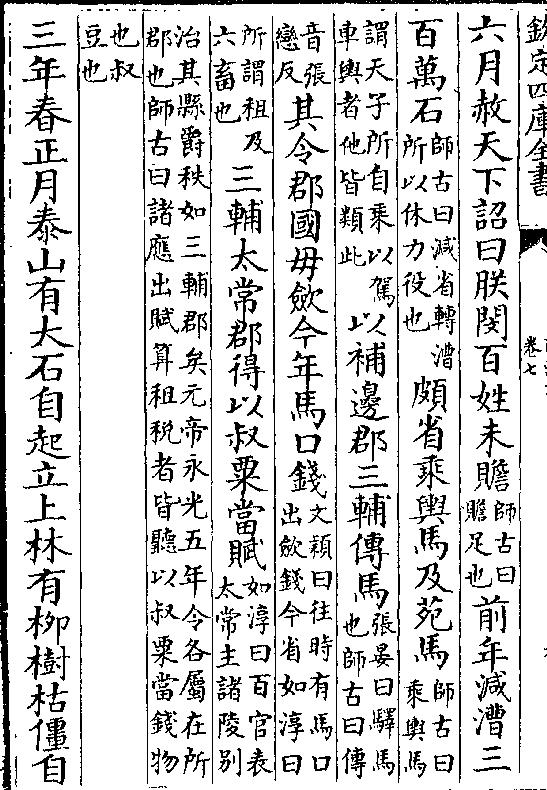 欽定四庫全書
卷七
六月赦天下詔曰朕閔百姓未贍師古曰贍足也前年減漕三
百萬石師古曰減省轉漕所以休力役也頗省乘輿馬及苑馬師古曰乘輿馬
謂天子所自乘以駕車輿者他皆類此以補邊郡三輔傳馬張晏曰驛馬也師古曰傳
音張戀反其令郡國毋斂今年馬口錢文頴曰往時有馬口出斂錢今省如淳曰
所謂租及六畜也三輔太常郡得以叔粟當賦如淳曰百官表太常主諸陵别
治其縣爵秩如三輔郡矣元帝永光五年令各屬在所郡也師古曰諸應出賦算租税者皆聽以叔粟當錢物
也叔豆也
三年春正月泰山有大石自起立上林有柳樹枯僵自